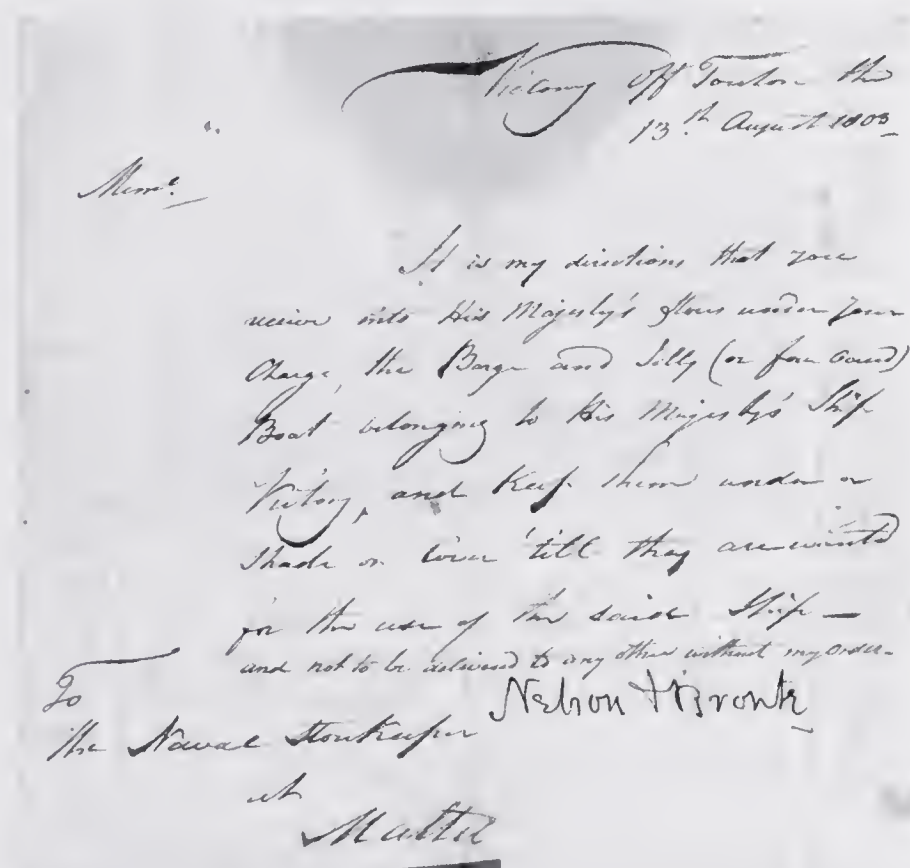 Victory off Toulon the
13th August 1803
Memo.
It is my directions that you
receive into His Majesty's Stores under your
Charge, the Barge and Jolly (or four oared)
Boat belonging to His Majesty's Ship
Victory, and keep them under a
Shade or cover 'till they are wanted
for the use of the said Ship —
and not to be delivered to any other without my order.
Nelson & Bronte
To
the Naval Storekeeper
at
Malta